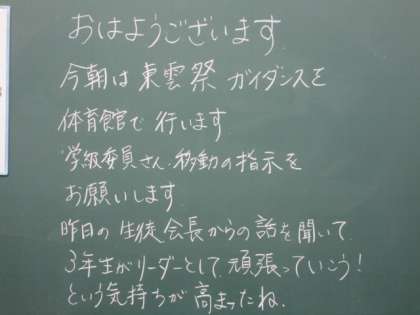 おはようございます.
今朝は東雲祭ガイダンスを
体育館で行います
学級委員さん.移動の指示を
お願いします.
昨日の生徒会長からの話を聞いて.
3年生がリーダーとして頑張っていこう!
という気持ちが高まったね.